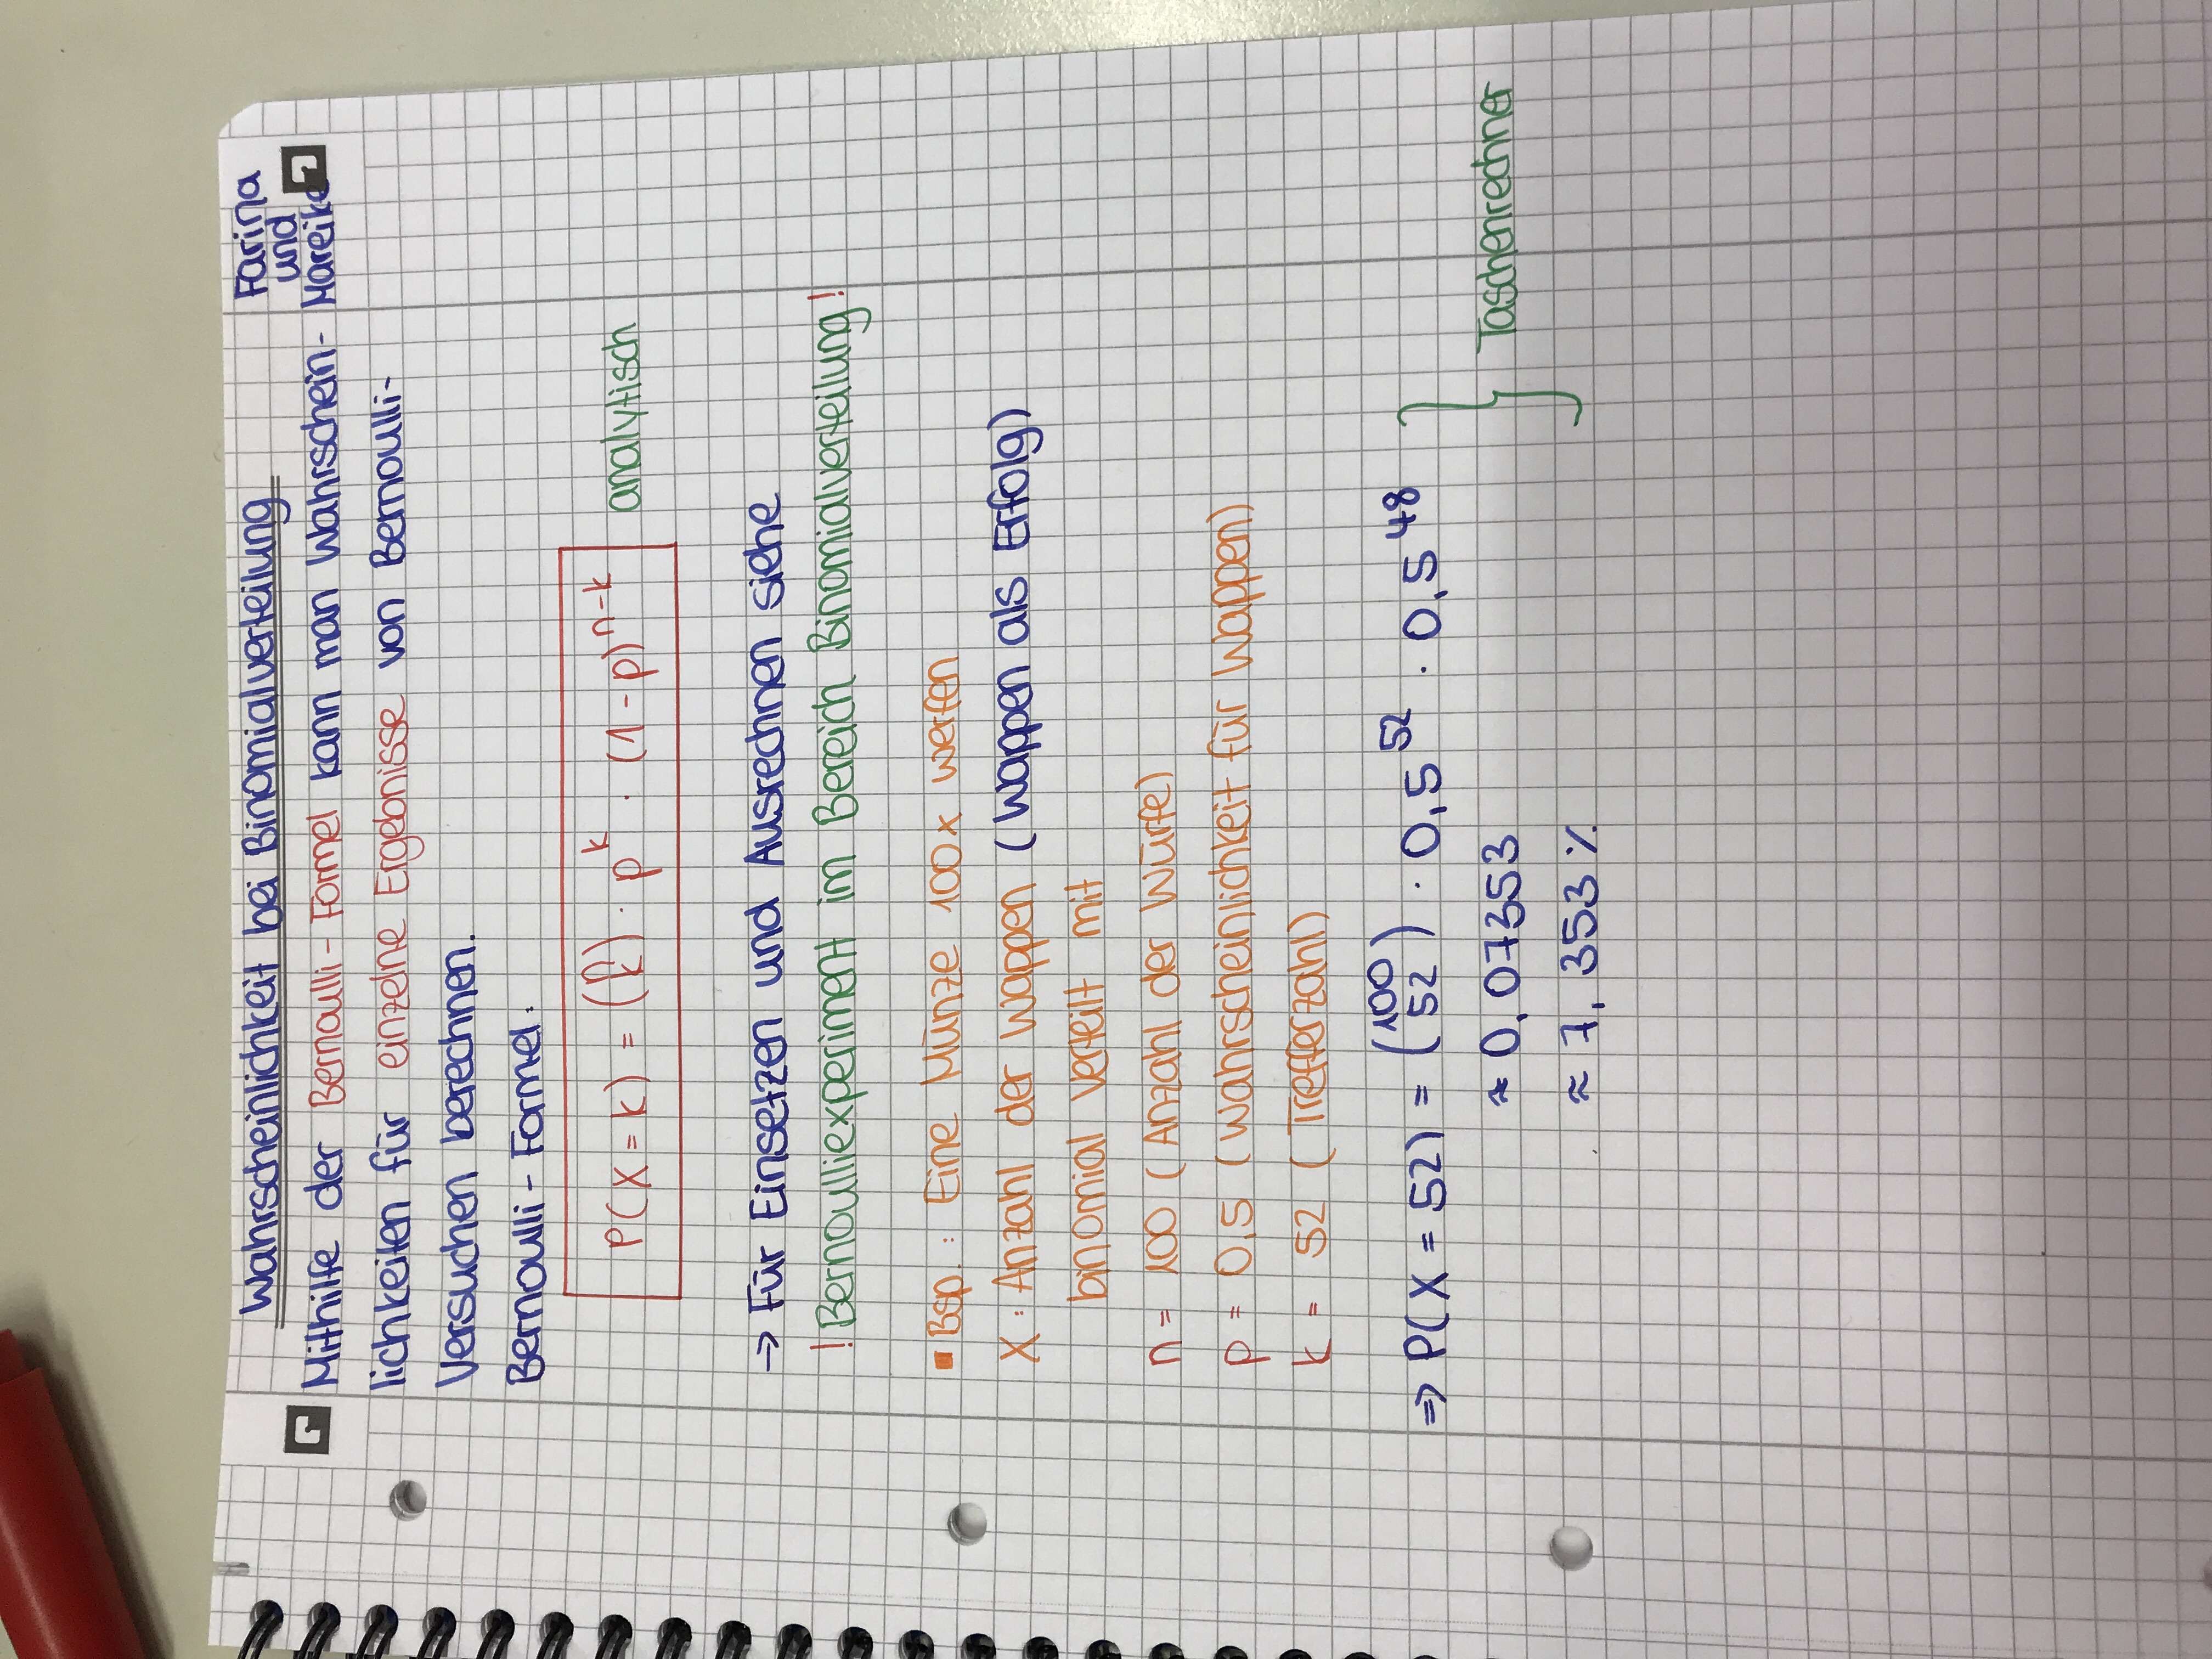 Farina
und
Mareike
Wahrscheinlichkeit bei Binomialverteilung
Mithilfe der Bernoulli-Formel kann man Wahrschein-
lichkeiten für einzelne Ergebnisse von Bernoulli-
Versuchen berechnen.
Bernoulli-Formel:
P(X=k) = (n k) · p^k · (1-p)^n-k analytisch
→ Für Einsetzen und Ausrechnen siehe
! Bernoulliexperiment im Bereich Binomialverteilung!
▪ Bsp.: Eine Münze 100x werfen
X: Anzahl der Wappen (Wappen als Erfolg)
binomial verteilt mit
n = 100 (Anzahl der Würfe)
p = 0,5 (Wahrscheinlichkeit für Wappen)
k = 52 (Trefferzahl)
⇒ P(X = 52) = (100 52) · 0,5^52 · 0,5^48
≈ 0,07353 } Taschenrechner
≈ 7,353 %